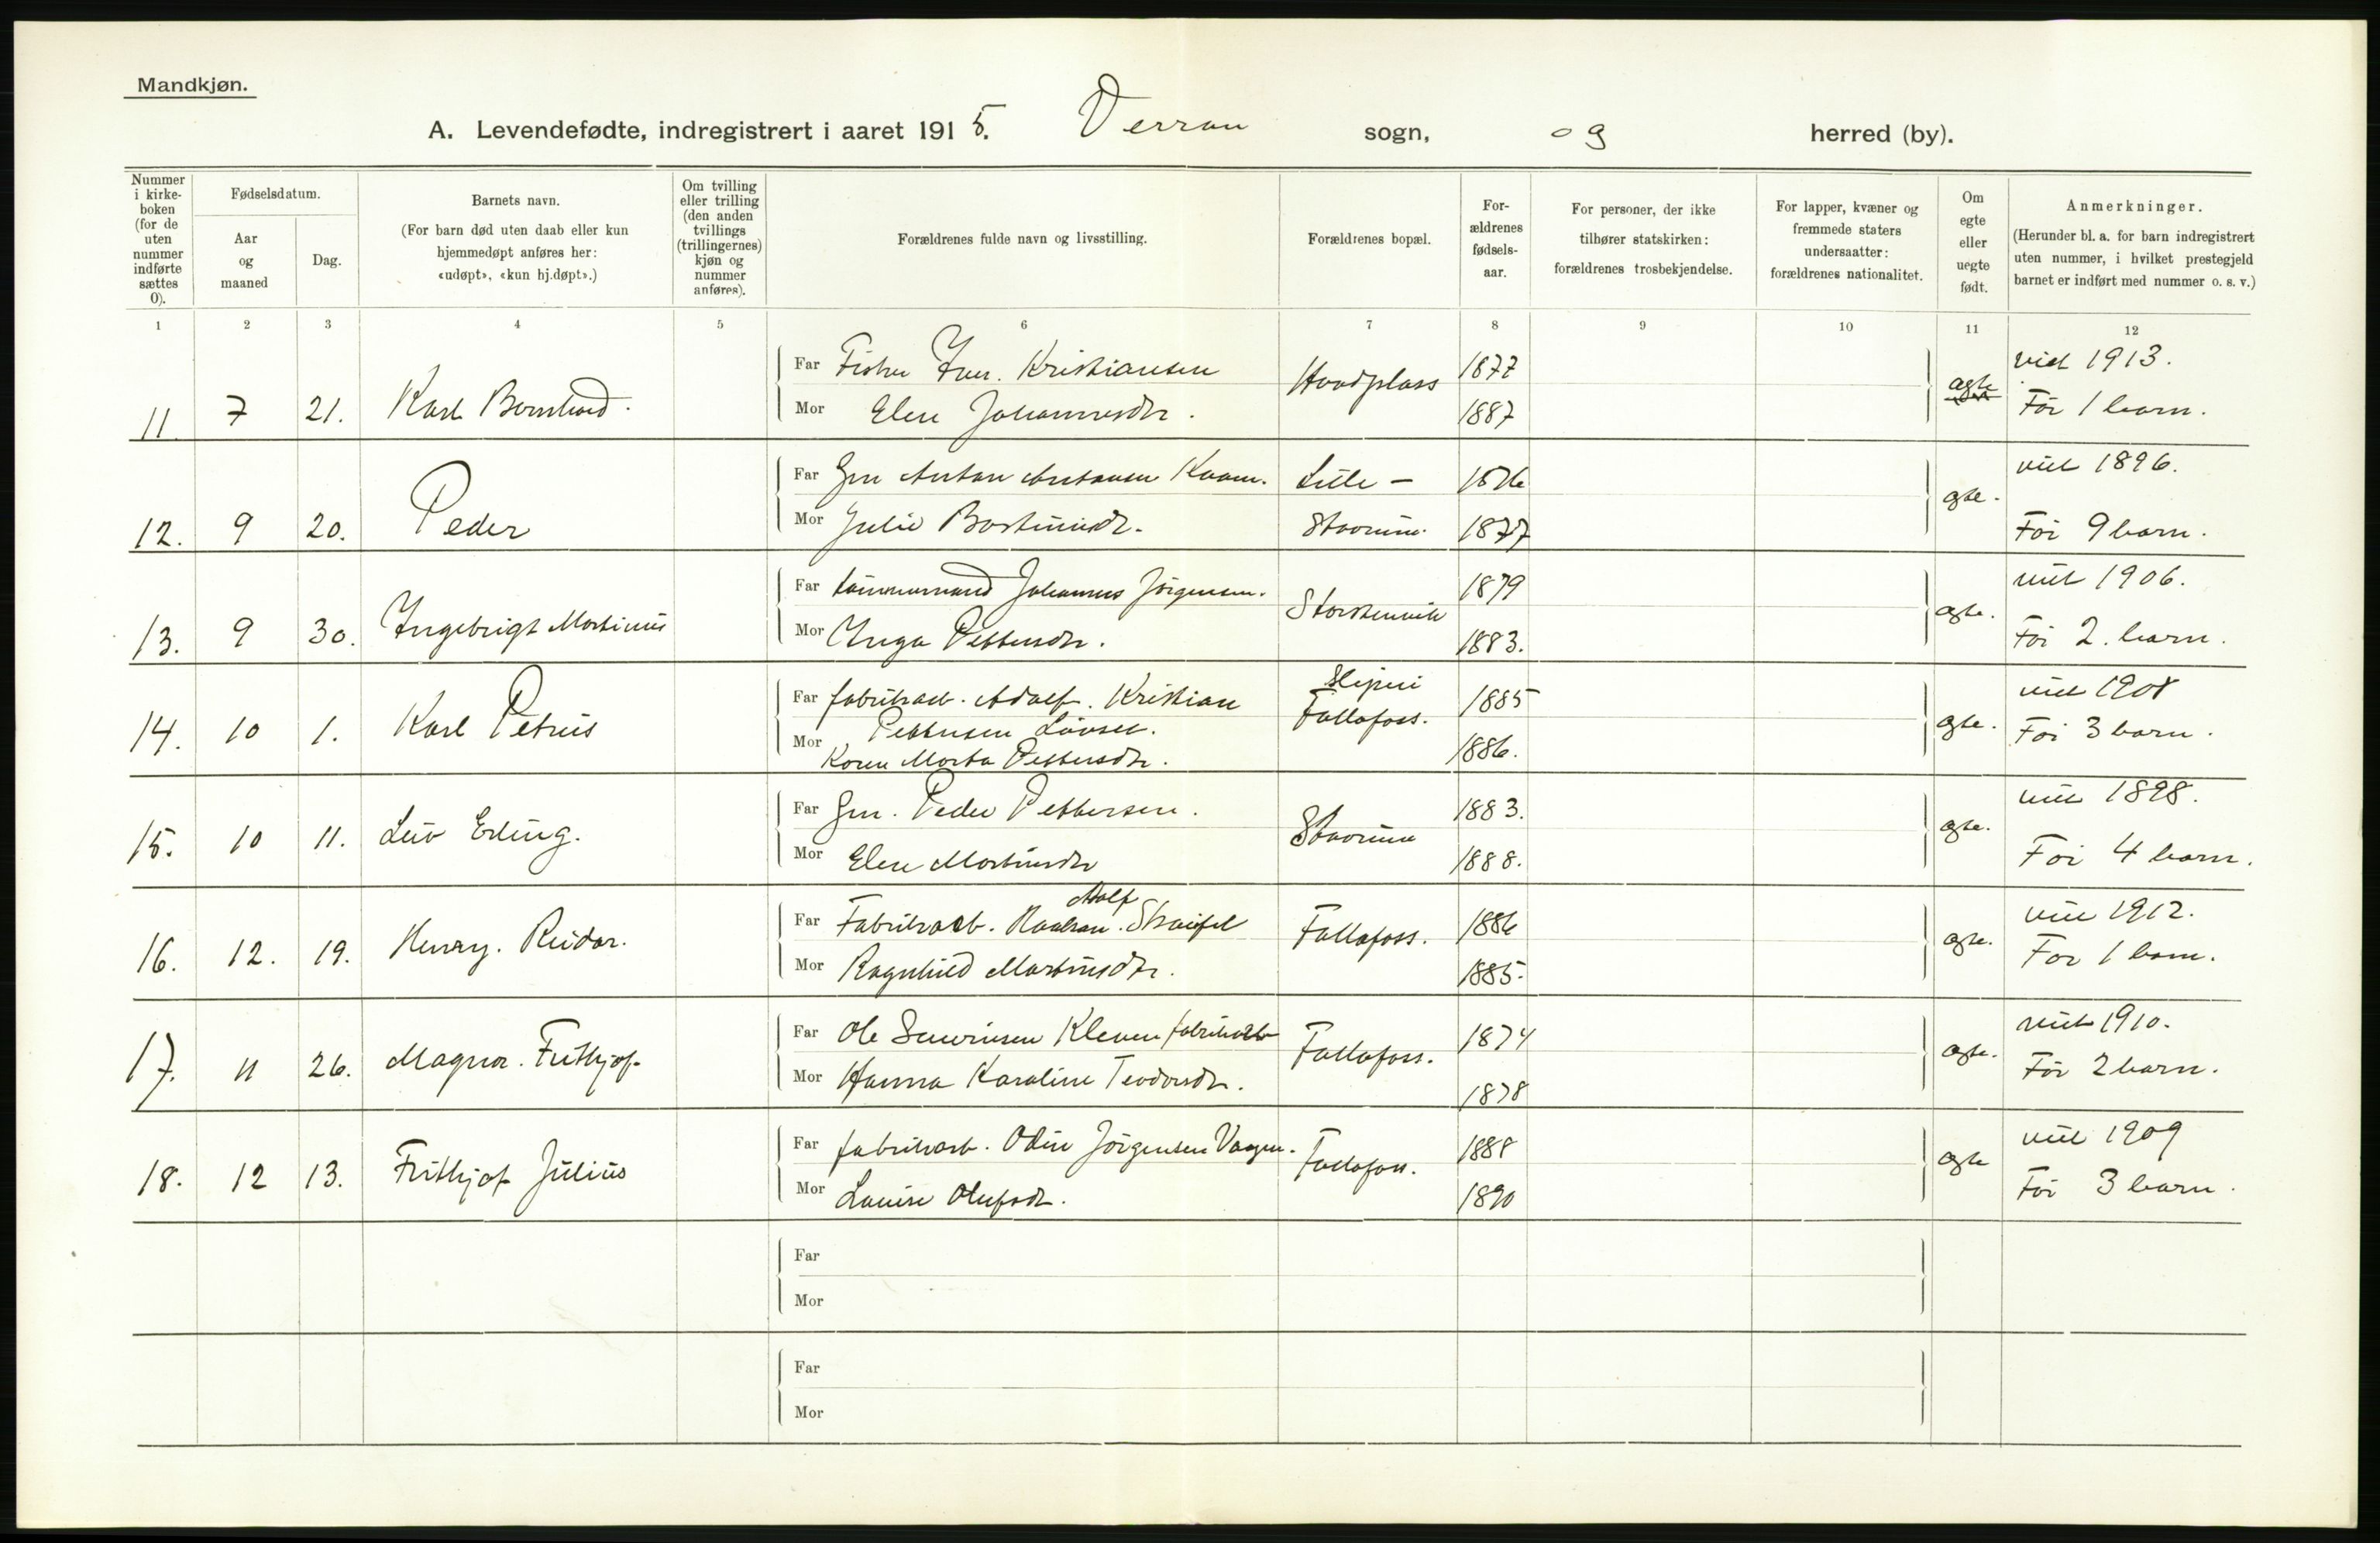 Mandkjøn.
A. Levendefødte, indregistrert i aaret 1915. Verran sogn, og herred (by).
Nummer i kirke- boken (for de uten nummer indførte sættes 0).
Fødselsdatum.
Aar og maaned
Dag.
Barnets navn.
(For barn død uten daab eller kun hjemmedøpt anføres her: «udøpt», «kun hj.døpt».)
Om tvilling eller trilling (den anden tvillings (trillingernes) kjøn og nummer anføres).
Forældrenes fulde navn og livsstilling.
Forældrenes bopæl.
For- ældrenes fødsels- aar.
For personer, der ikke tilhører statskirken: forældrenes trosbekjendelse.
For lapper, kvæner og fremmede staters undersaatter: forældrenes nationalitet.
Om egte eller uegte født.
Anmerkninger.
(Herunder bl. a. for barn indregistrert uten nummer, i hvilket prestegjeld barnet er indført med nummer o. s. v.)
1 2 3 4 5 6 7 8 9 10 11 12
Far Fisker Iver Kristiansen 1877 viet 1913.
11 7 21. Karl Bernhard. Hovdplass ægte
Mor Elen Johannesdtr. 1887 Før 1 barn.
Far Gm Anton Antonsen Kvam. Lille - 1876 viet 1896.
12. 9 20. Peder ægte.
Mor Julie Bortinusdtr. Stavrum. 1877 Før 9 barn.
Far tømmermand Johannes Jørgensen. 1879 viet 1906.
13. 9 30. Ingebrigt Martinus ægte.
Mor Inga Pettersdtr. 1883. Før 2. barn.
Far fabrikarb. Adolf. Kristian Sliperi 1885 viet 1908
14. 10 1. Karl Petrus Pettersen Follafoss. ægte.
Mor Karen Marta Pettersdtr. 1886. Før 3 barn.
Far Gm. Peder Pettersen. 1883. viet 1898.
15. 10 11. Leiv Erling. Stavrum ægte.
Mor Elen Martinsdtr 1888. Før 4 barn.
Adolf
Far Fabrikarb. 1886 viet 1912.
16. 12. 19. Henry. Reidar. Follafoss. ægte.
Mor Ragnhild Martinsdtr. 1885. Før 1 barn.
Far Ole Sevrinsen Kleven fabrikarb 1874 viet 1910.
17. 11 26. Magnor. Frithjof Follafoss. ægte.
Mor Hanna Karoline Teodorsdtr. 1878 Før 2 barn.
Far fabrikarb. Odin Jørgensen Vangen. 1888 viet 1909
18. 12 13. Frithjof Julius Follafoss. ægte
Mor Louise Olufsdtr. 1890 Før 3 barn.
Far
Mor
Far
Mor